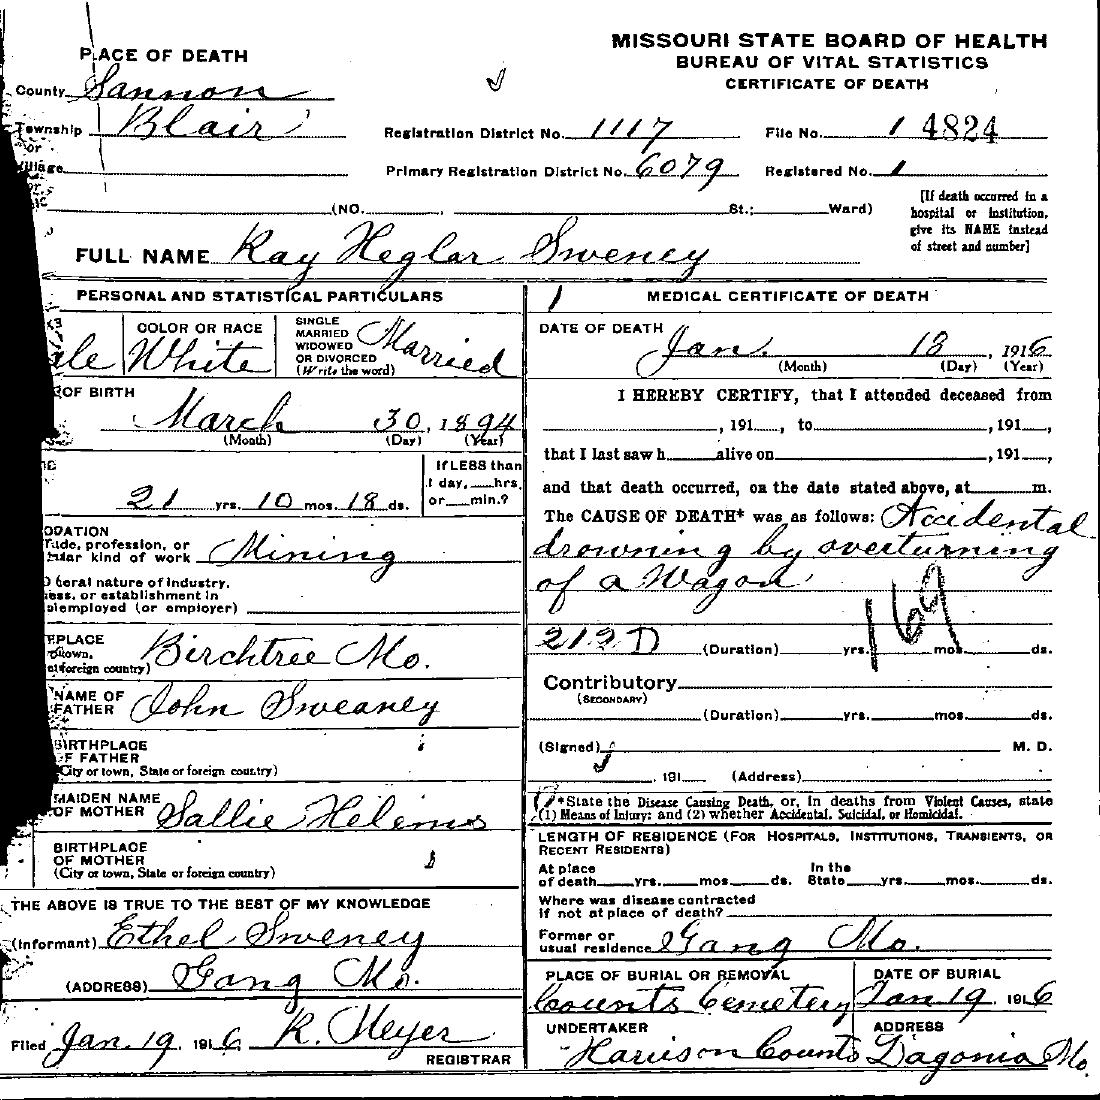 MISSOURI STATE BOARD OF HEALTH
BUREAU OF VITAL STATISTICS
CERTIFICATE OF DEATH
PLACE OF DEATH
County Sannon
Township Blair
or
Village
or
Registration District No. 1117
File No. 1 4824
Primary Registration District No. 6079
Registered No. 1
(NO. , St.; Ward)
[If death occurred in a
hospital or institution,
give its NAME instead
of street and number]
FULL NAME Ray Heglar Sweney
PERSONAL AND STATISTICAL PARTICULARS
ale
COLOR OR RACE
White
SINGLE
MARRIED
WIDOWED
OR DIVORCED
(Write the word)
Married
OF BIRTH
March 30, 1894
(Month) (Day) (Year)
21 yrs. 10 mos. 18 ds.
If LESS than
1 day, hrs.
or min.?
Trade, profession, or
kind of work Mining
eral nature of industry,
ess, or establishment in
employed (or employer)
PLACE
town,
foreign country) Birchtree Mo.
NAME OF
FATHER John Sweaney
BIRTHPLACE
OF FATHER
(City or town, State or foreign country)
MAIDEN NAME
OF MOTHER Sallie Helems
BIRTHPLACE
OF MOTHER
(City or town, State or foreign country)
THE ABOVE IS TRUE TO THE BEST OF MY KNOWLEDGE
(Informant) Ethel Sweney
(ADDRESS) Gang Mo.
Filed Jan. 19, 1916 R. Meyer
REGISTRAR
1 MEDICAL CERTIFICATE OF DEATH
DATE OF DEATH Jan. 18, 1916
(Month) (Day) (Year)
I HEREBY CERTIFY, that I attended deceased from
, 191 , to , 191 ,
that I last saw h alive on , 191 ,
and that death occurred, on the date stated above, at m.
The CAUSE OF DEATH* was as follows: Accidental
drowning by overturning
of a Wagon
169
212 D (Duration) yrs. mos. ds.
Contributory
(SECONDARY)
(Duration) yrs. mos. ds.
(Signed) M. D.
, 191 (Address)
*State the Disease Causing Death, or, in deaths from Violent Causes, state
(1) Means of Injury; and (2) whether Accidental, Suicidal, or Homicidal.
LENGTH OF RESIDENCE (FOR HOSPITALS, INSTITUTIONS, TRANSIENTS, OR
RECENT RESIDENTS)
At place
of death yrs. mos. ds.
In the
State yrs. mos. ds.
Where was disease contracted
if not at place of death?
Former or
usual residence Gang Mo.
PLACE OF BURIAL OR REMOVAL
Counts Cemetery
DATE OF BURIAL
Jan. 19, 1916
UNDERTAKER
Harrison Counts
ADDRESS
Dagonia Mo.